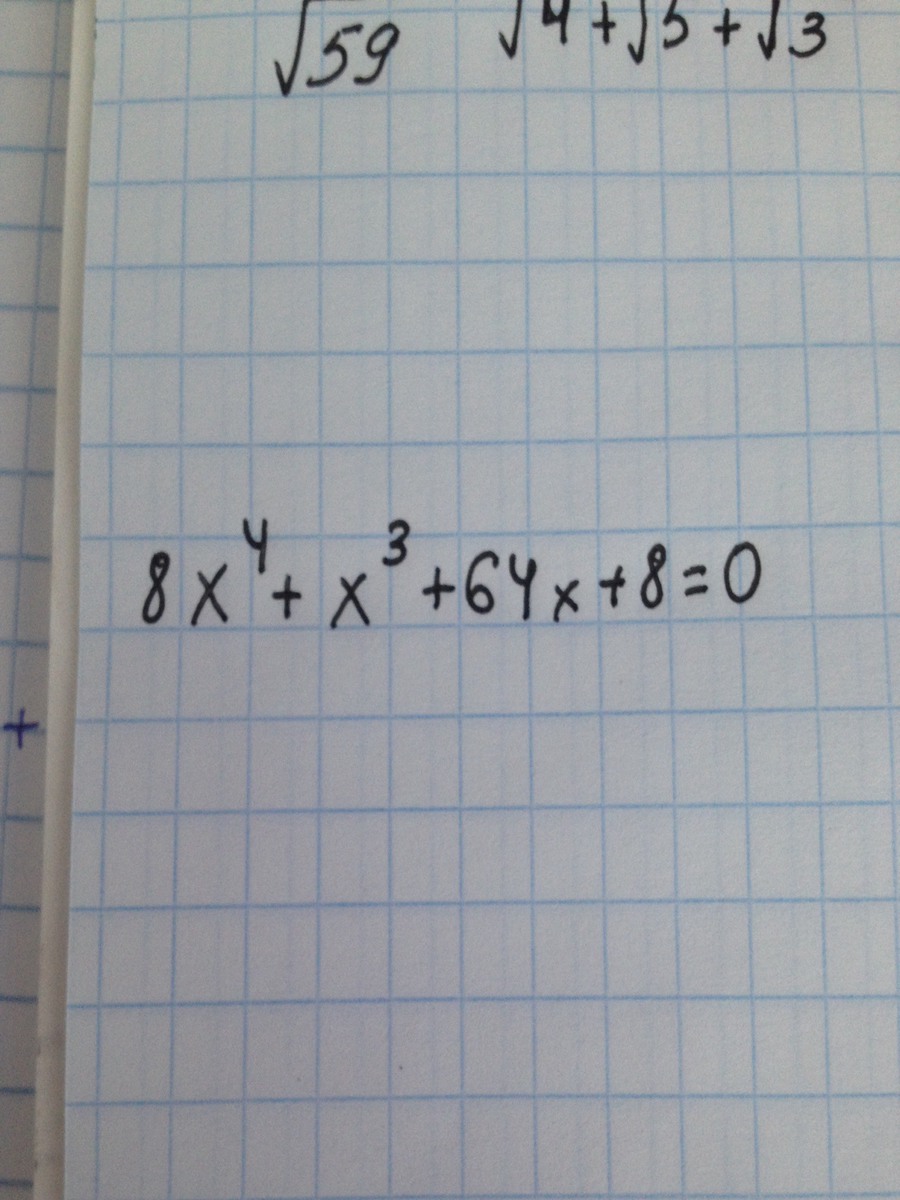 √59 √4+√5+√3
8x⁴+x³+64x+8=0
+